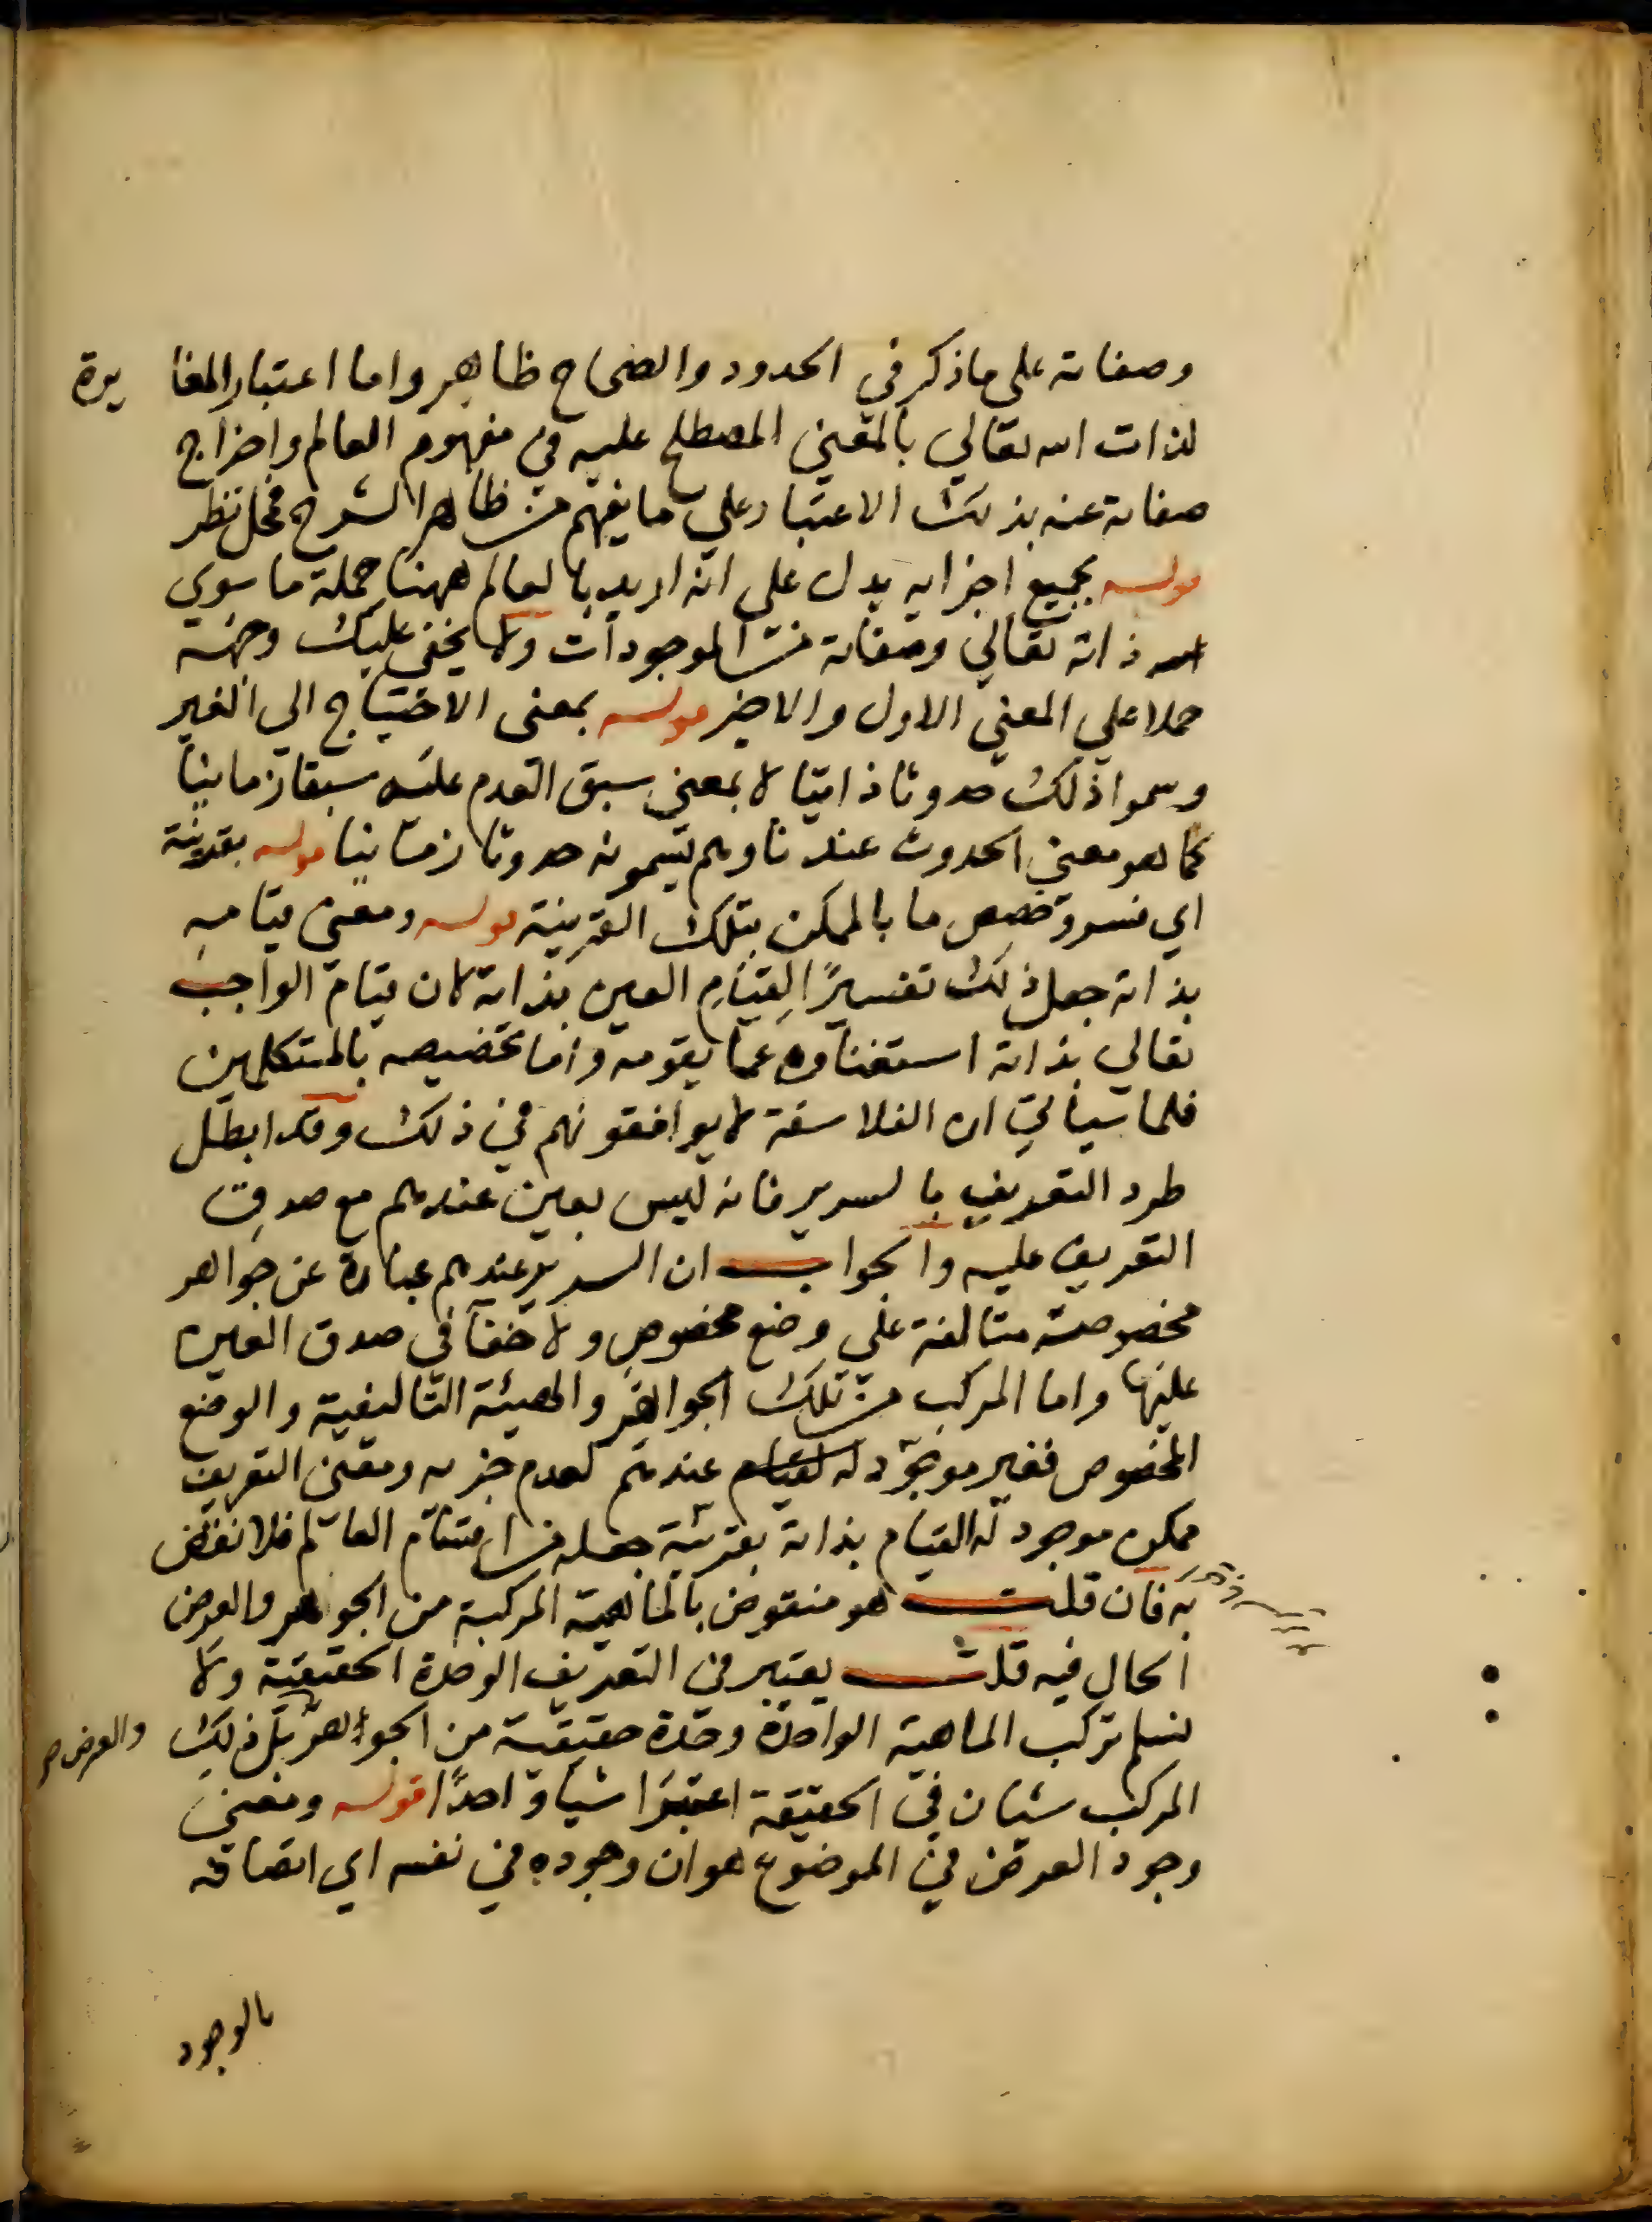 وصفاته على ماذكر في الحدود والصحاح ظاهر واما اعتبار المغا يرة
لذات الله تعالي بالمعني المصطلح عليه في مفهوم العالم واخراج
صفاته عنه بذلك الاعتبار علي ما يفهم من ظاهر الشرح فمحل نظر
قوله بجميع اجزايه يدل على انه اريد بالعالم ههنا جملة ما سوي
ذاته تعالي وصفاته من الموجودات ولا يخفى عليك وجهه
حملا علي المعني الاول والاخير قوله بمعنى الاحتياج الي الغير
وسموا ذلك حدوثا ذاتيا لا بمعني سبق العدم عليه سبقا زمانيا
كما هو معني الحدوث عندنا وهم يسمونه حدوثا زمانيا قوله بقرينة
اي فسر وخصص ما بالممكن بتلك القرينة قوله ومعنى قيامه
بذاته جعل ذلك تفسيرًا لقيام العين بذاته لان قيام الواجب
تعالي بذاته استغناوه عما يقومه واما تخصيصه بالمتكلمين
فلما سياتي ان الفلاسفة لا يوافقونهم في ذلك وقد ابطل
طرد التعريف بالسرير فانه ليس بعين عندهم مع صدق
التعريف عليه والجواب ان السرير عندهم عبارة عن جواهر
مخصوصة متالفة على وضع مخصوص ولا خفآ في صدق العين
عليها واما المركب من تلك الجواهر والهيئة التاليفية والوضع
المخصوص فغير موجود عندهم لعدم جزءه ومعنى التعريف
ممكن موجود له القيام بذاته بقرينة جعله من اقسام العالم فلا نقض
به فان قلت هو منقوض بالماهية المركبة من الجوهر والعرض
الحال فيه قلت يعتبر في التعريف الوحدة الحقيقية ولا
نسلم تركب الماهية الواحدة وحدة حقيقية من الجواهر والعرض بل ذلك
المركب شيئان في الحقيقة اعتبرا شيأ واحدًا قوله ومعني
وجود العرض في الموضوع هو ان وجوده في نفسه اي اتصافه
بالوجود